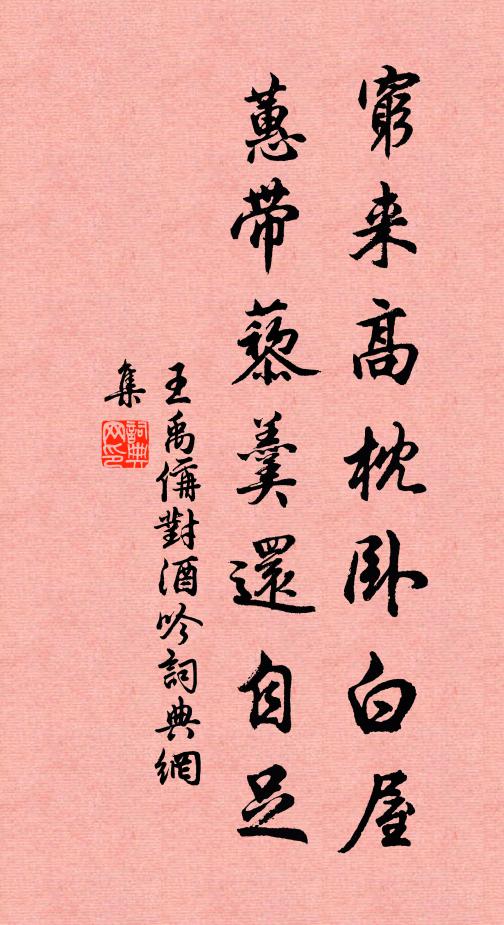 窮来高枕卧白屋
蕙带藜羹還自足
王禹偁對酒吟詞典網
集
詞典网印